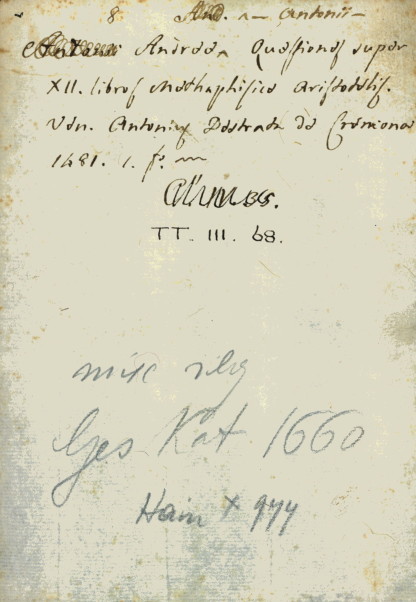 8 And. – Antonii –
Andreae Quaestiones super
XII. libros Methaphisice Aristotelis.
Ven. Antonius Destrata de Cremona
1481. 1. f°.
TT. III. 68.
Ges Kat 1660
Hain × 977